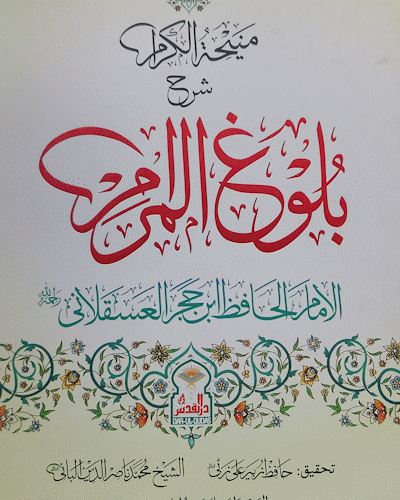 منیحة الکرام
شرح
بُلُوغ المرام
الامام الحافظ ابن حجر العسقلانی رحمة اللہ
دارالقدس
DAR-UL-QUDAS
تحقیق: حافظ زبیر علی زئی الشیخ محمد ناصر الدین البانی